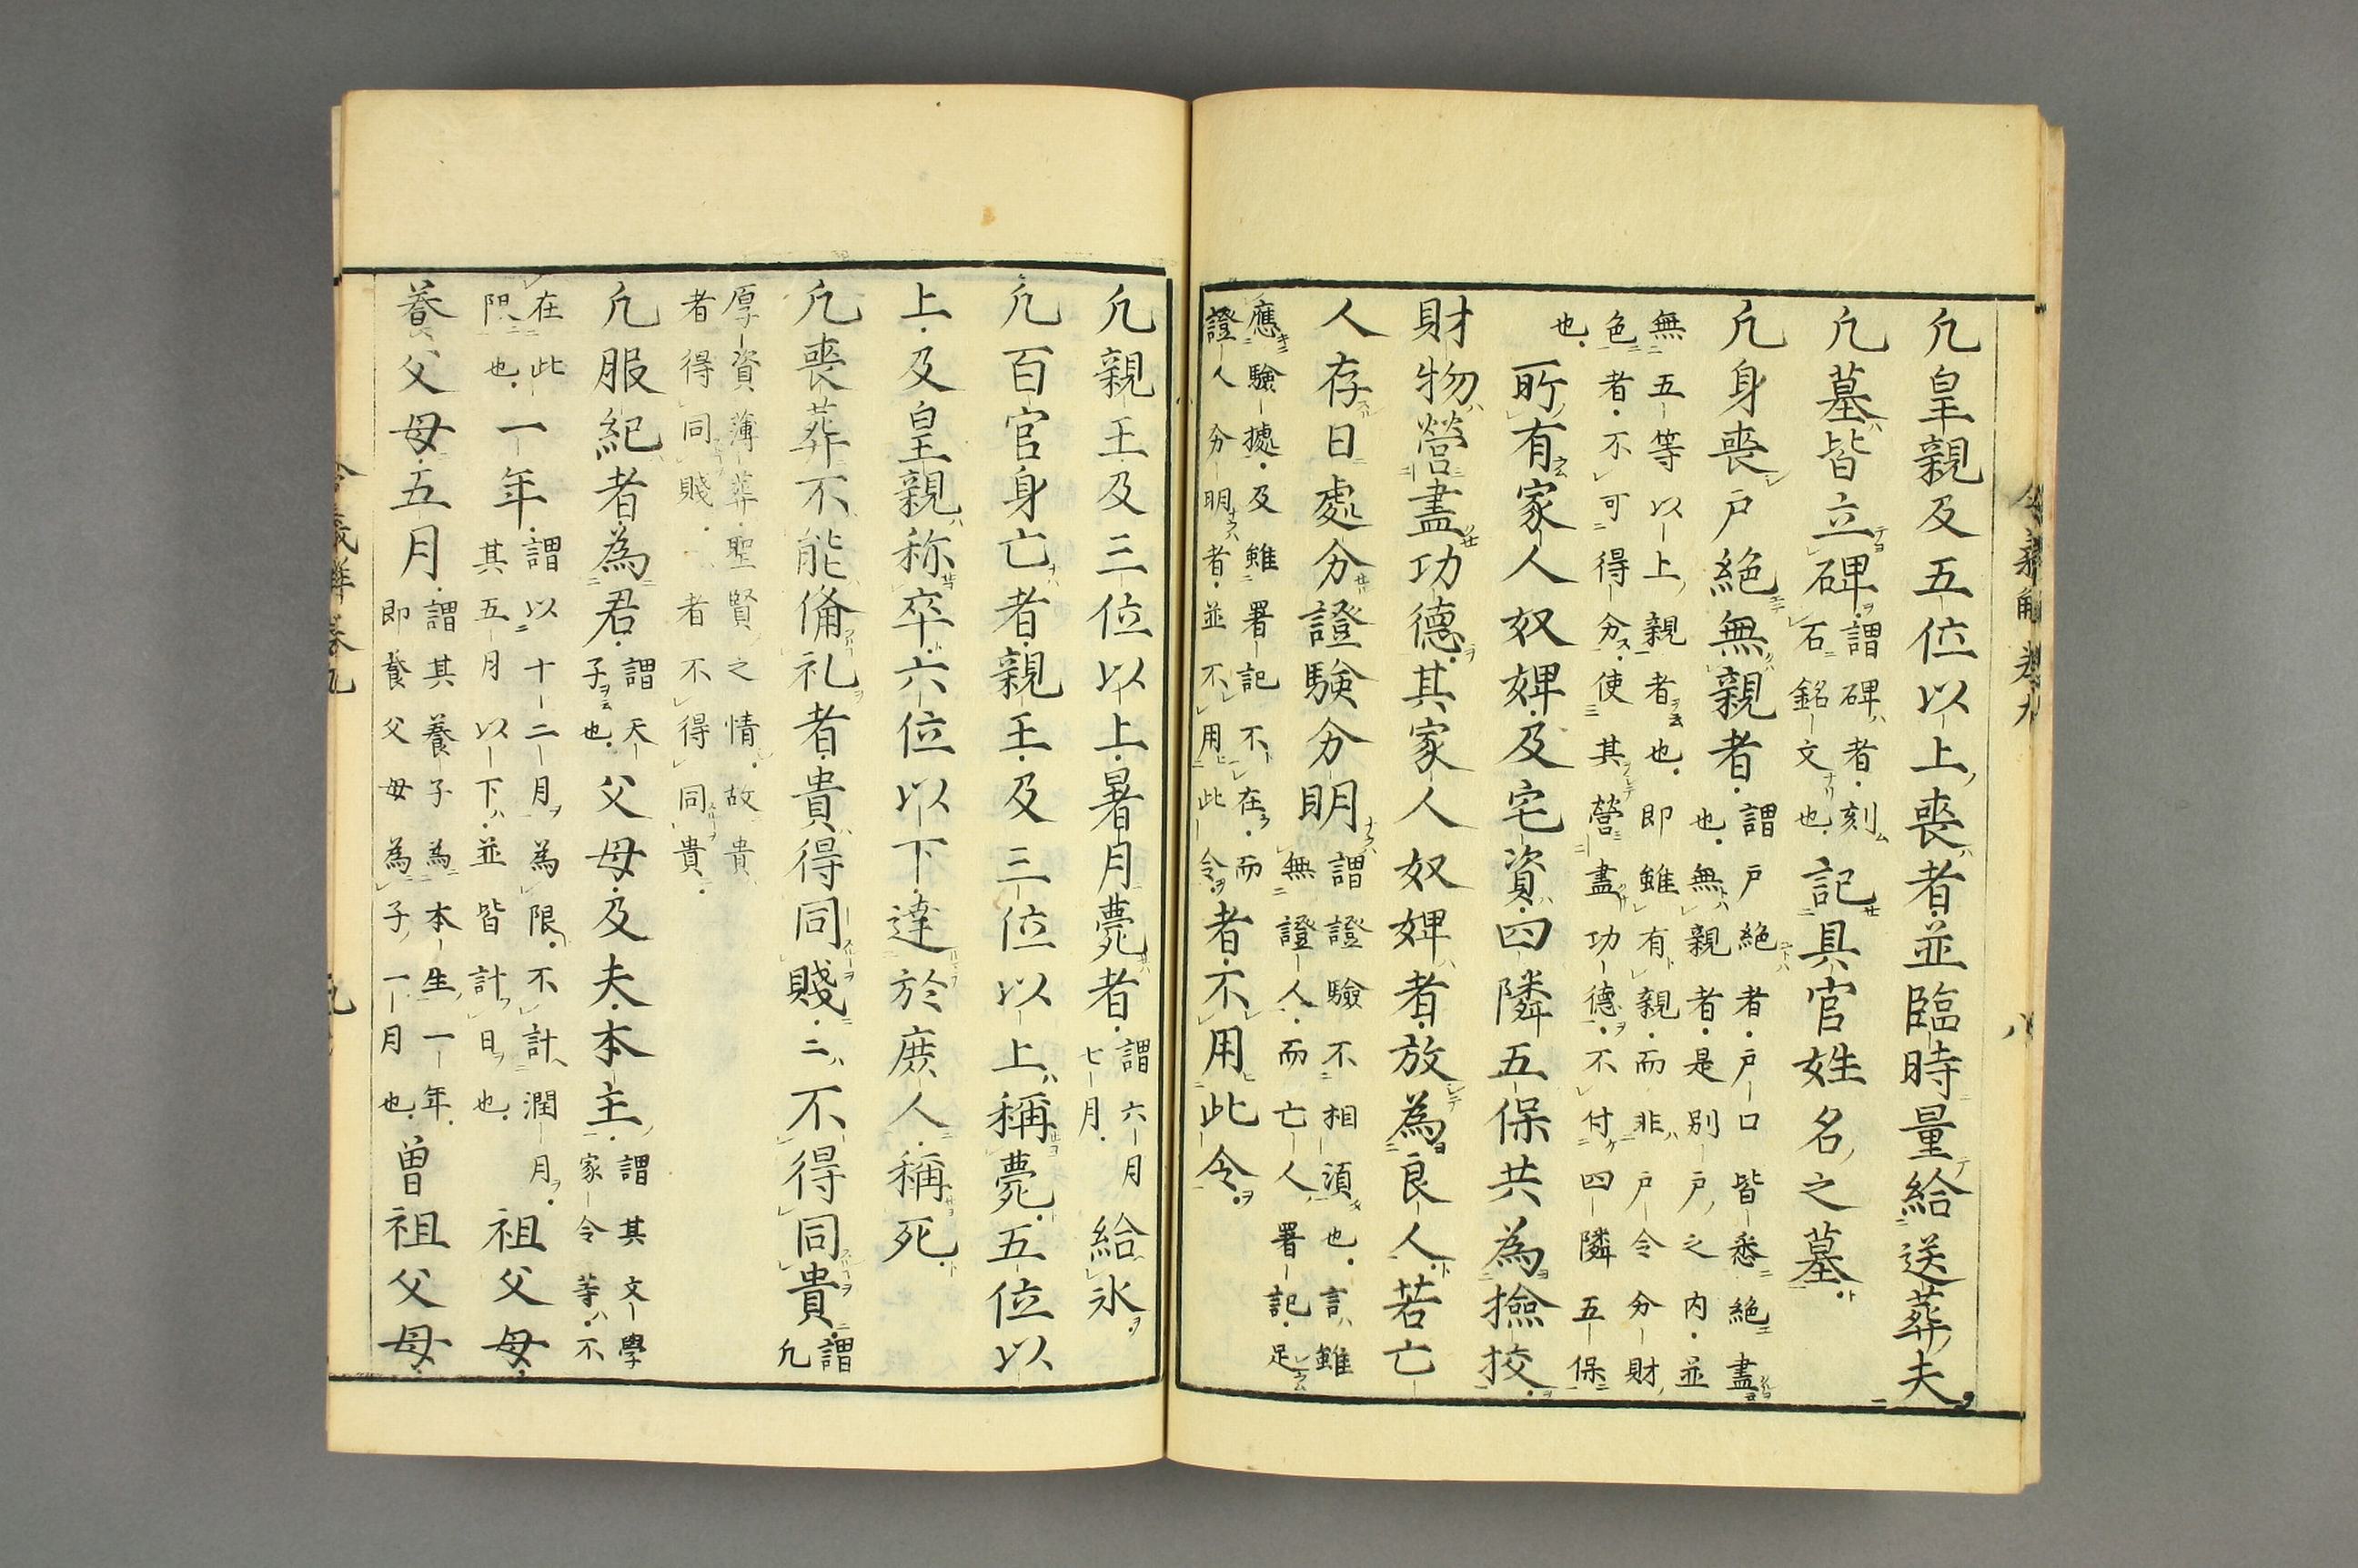 令義解 巻九 八
凢皇親及五位以上喪者並臨時量給送葬夫
凢墓皆立碑
謂碑者刻
石銘文也
記具官姓名之墓
凢身喪戸絶無親者
謂戸絶者戸口皆悉絶盡
也無親者是別戸之内並
無五等以上親者也即雖有親而非戸令分財
色者不可得分使其營盡功德不付四隣五保
也
所有家人奴婢及宅資四隣五保共為撿挍
財物營盡功德其家人奴婢者放為良人若亡
人存日處分證驗分明
謂證驗不相須也言雖
無證人而亡人署記足
應驗據及雖署記不在而
證人分明者並不用此令
者不用此令
凢親王及三位以上暑月薨者
謂六月
七月
給氷
凢百官身亡者親王及三位以上稱薨五位以
上及皇親称卒六位以下達於庶人稱死
凢喪葬不能俻礼者貴得同賤二不得同貴
謂
凢
厚資薄葬聖賢之情故貴
者得同賤 者不得同貴
凢服紀者為君
謂天
子也
父母及夫本主
謂其文學
家令等不
在此
限也
一年
謂以十二月為限不計潤月
其五月以下並皆計日也
祖父母
養父母五月
謂其養子為本生一年
即養父母為子一月也
曽祖父母
令義解巻九 九